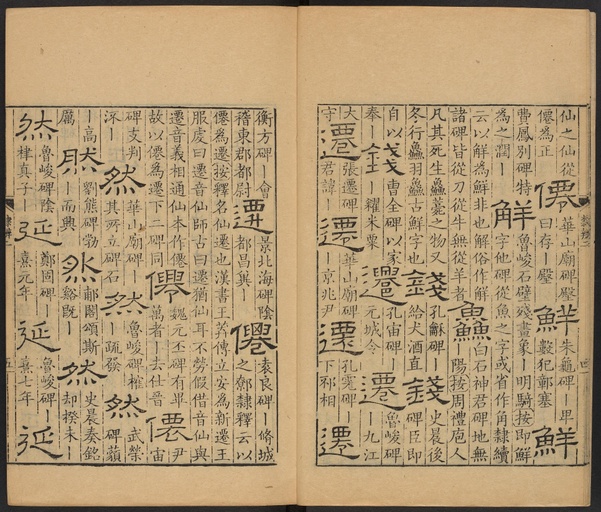 仙之仙從
僊為正 僊 華山廟碑壂 鮮 朱龜碑－卑
曰存－壂 鮮 數犯鄣塞
費鳳別碑特 鮮 魯峻石壁殘畫象－明騎按即鮮
為之潤－ 字他碑從魚之字或省作角隸續
云以解為鮮非也解俗作觧
諸碑皆從刀從牛無從羊者 鱻 白石神君碑地無
陽按周禮庖人
凡其死生鱻薧之物又 錢 孔龢碑－ 錢 史晨後
冬行鱻羽鱻古鮮字也 給犬酒直 碑臣即
自以 錢 曹全碑以家 遷 孔宙碑－ 遷 魯峻碑
奉－ 糴米粟 元城令 －九江
大 遷 張遷碑－ 遷 華山廟碑 遷 孔霙碑－ 遷
守 君諱－ －京兆尹 下邳相
衡方碑－會 遷 景北海碑陰 僊 袁良碑－脩城
稽東郡都尉 都昌巽－ 之鄭隸釋云以
僊為遷按釋名仙遷也漢書王莽傳立安為新遷王
服虔曰遷音仙師古曰遷猶仙耳不勞假借音仙與
遷音義相通仙本作僊 僊 魏元丕碑有畢 僊 尹宙
故以僊為遷下二碑同 萬者－去仕晉
碑支判 然 華山廟碑 然 魯峻碑權 然 武榮
流－ 其所立碑石 疏發 碑藐
－高 然 劉熊碑勃 然 郙閣頌斯 然 史晨奏銘
厲 －而興 谿既－ 却揆未－
然 魯峻碑陰 延 鄭固碑－ 延 魯峻碑－ 延
棣真子－ 熹元年 熹七年